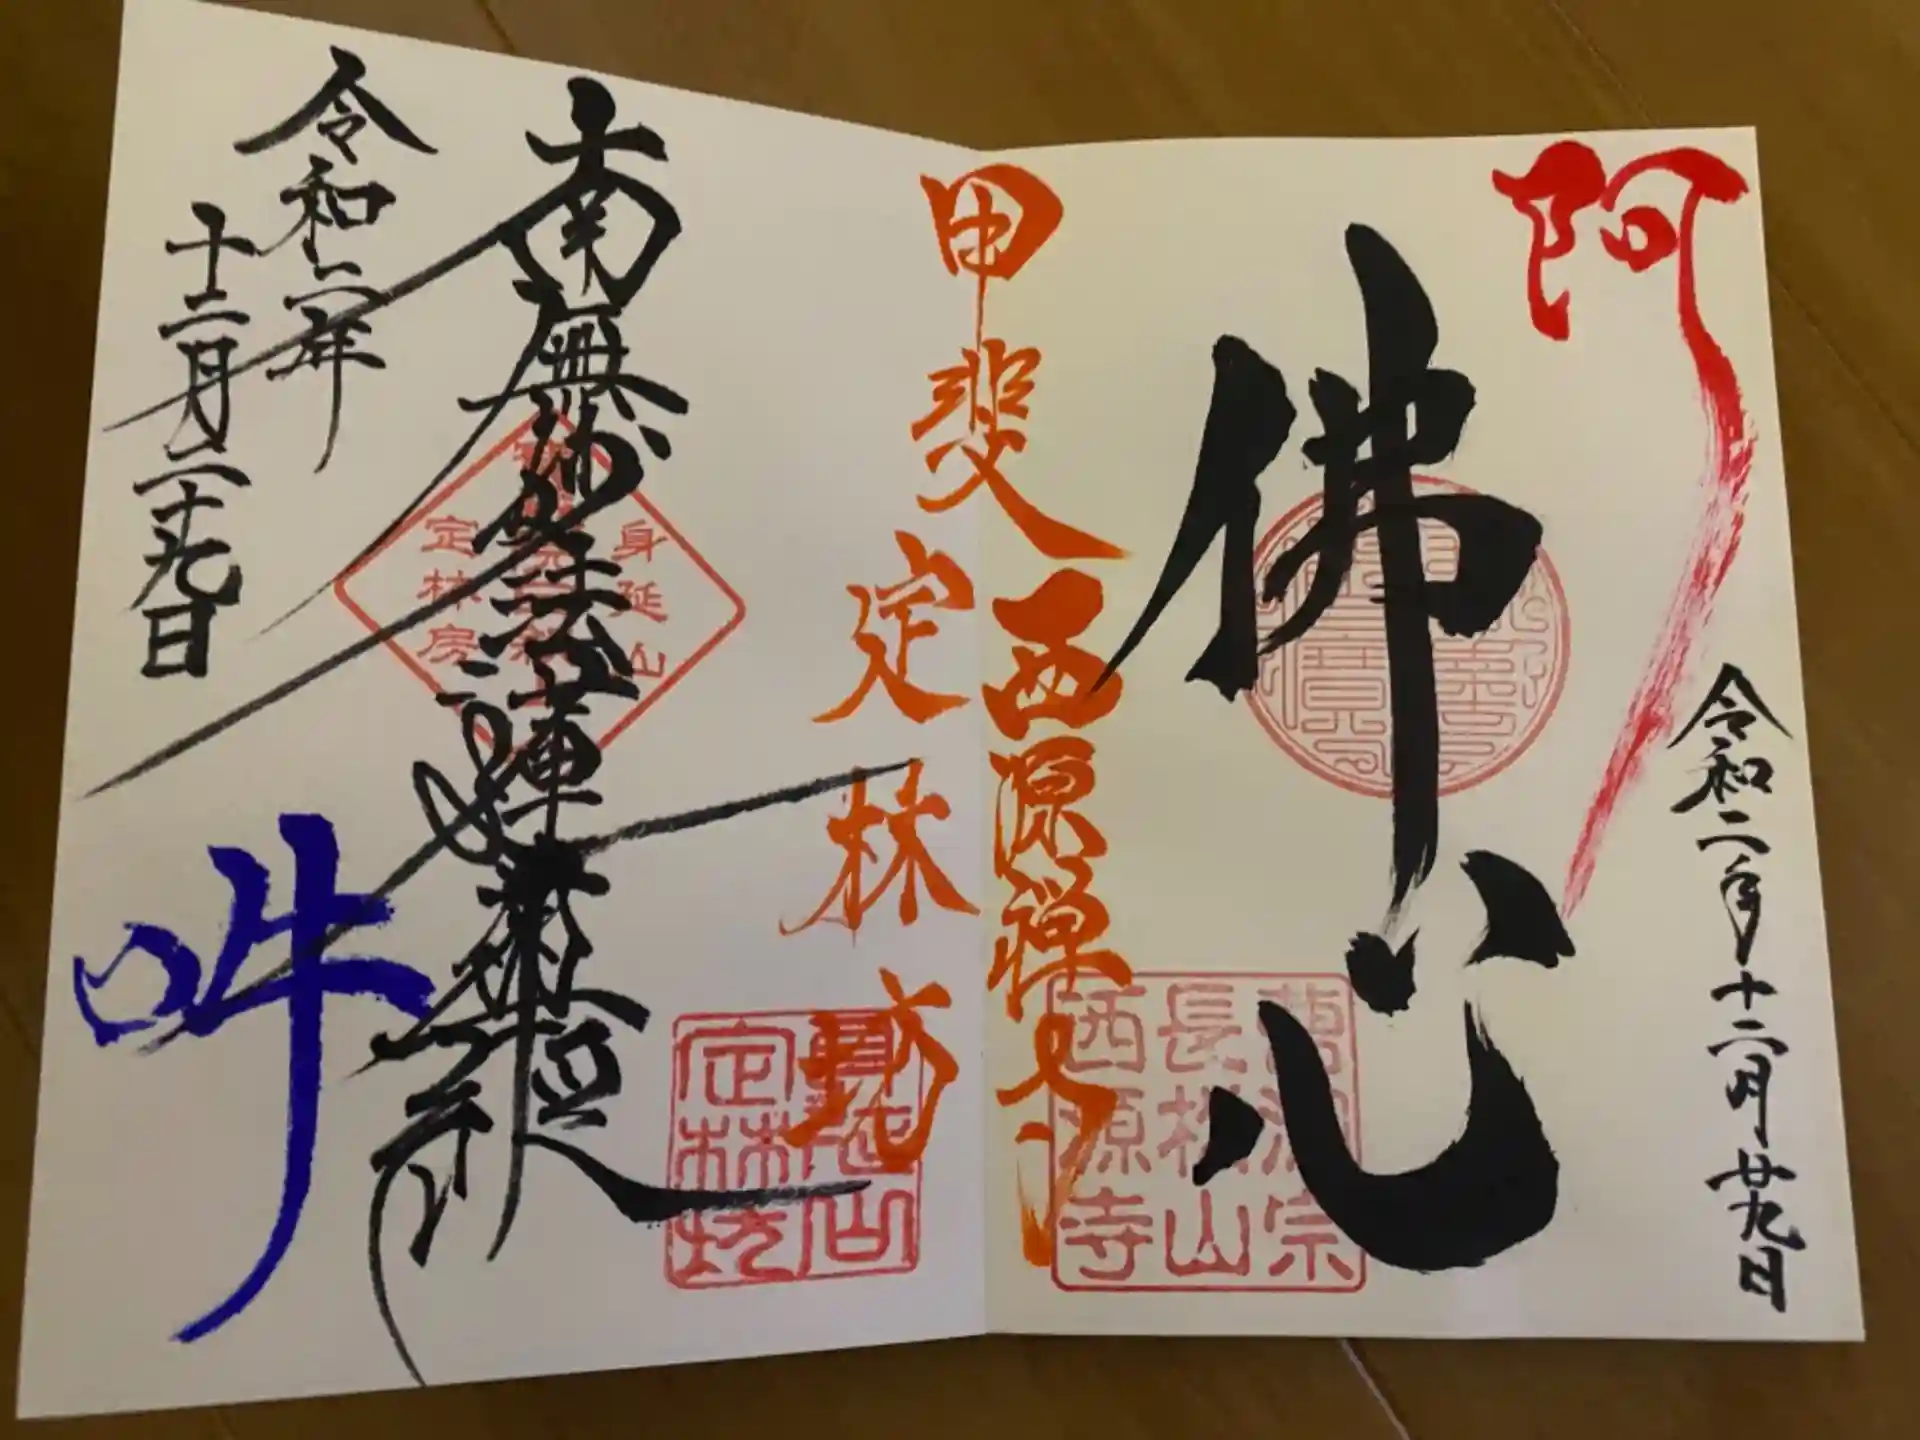 阿
令和二年十二月廿九日
佛心
萬
長松山
西源寺
宗
甲斐西源禅寺
定林坊
身延山
定林坊
身延山
定林房
南無妙法蓮華経
令和二年
十二月二十九日
吽